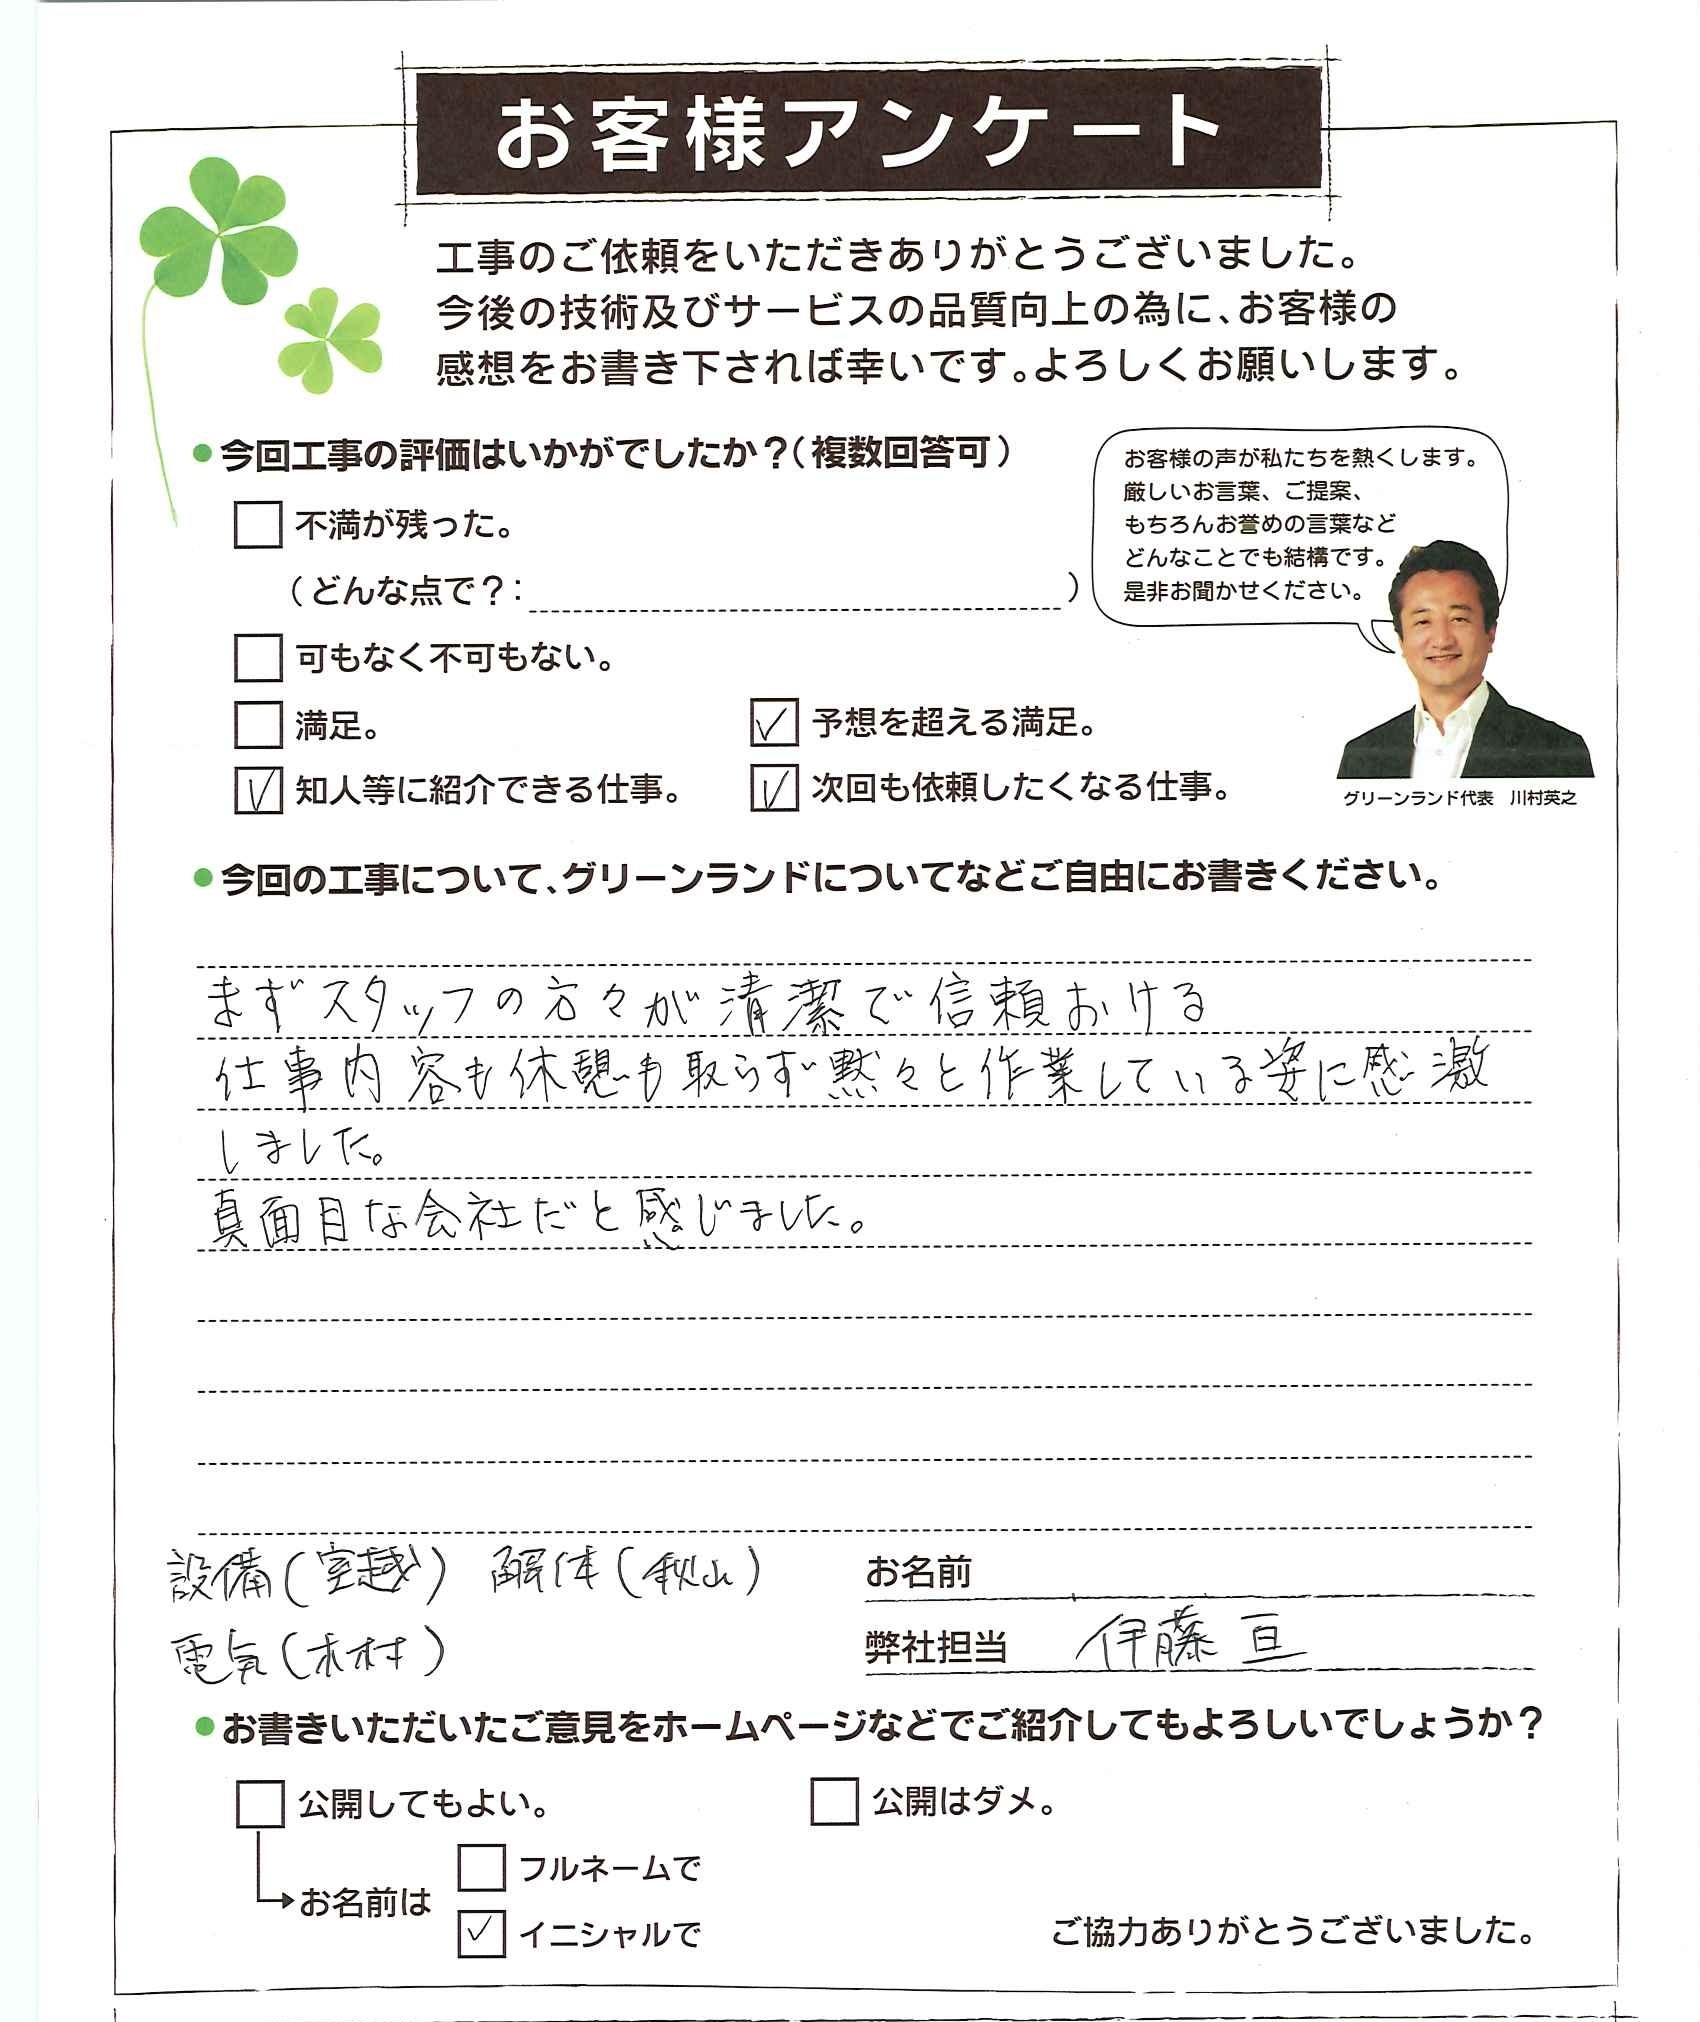 お客様アンケート
工事のご依頼をいただきありがとうございました。
今後の技術及びサービスの品質向上の為に、お客様の
感想をお書き下されば幸いです。よろしくお願いします。
●今回工事の評価はいかがでしたか？（複数回答可）
不満が残った。
（どんな点で？：　）
可もなく不可もない。
満足。
✓ 予想を超える満足。
✓ 知人等に紹介できる仕事。
✓ 次回も依頼したくなる仕事。
お客様の声が私たちを熱くします。
厳しいお言葉、ご提案、
もちろんお誉めの言葉など
どんなことでも結構です。
是非お聞かせください。
グリーンランド代表　川村英之
●今回の工事について、グリーンランドについてなどご自由にお書きください。
まずスタッフの方々が清潔で信頼おける
仕事内容も休憩も取らず黙々と作業している姿に感激
しました。
真面目な会社だと感じました。
設備(室越) 解体(秋山)
電気(木村)
お名前
弊社担当　伊藤 亘
●お書きいただいたご意見をホームページなどでご紹介してもよろしいでしょうか？
公開してもよい。
公開はダメ。
お名前は
フルネームで
✓ イニシャルで
ご協力ありがとうございました。